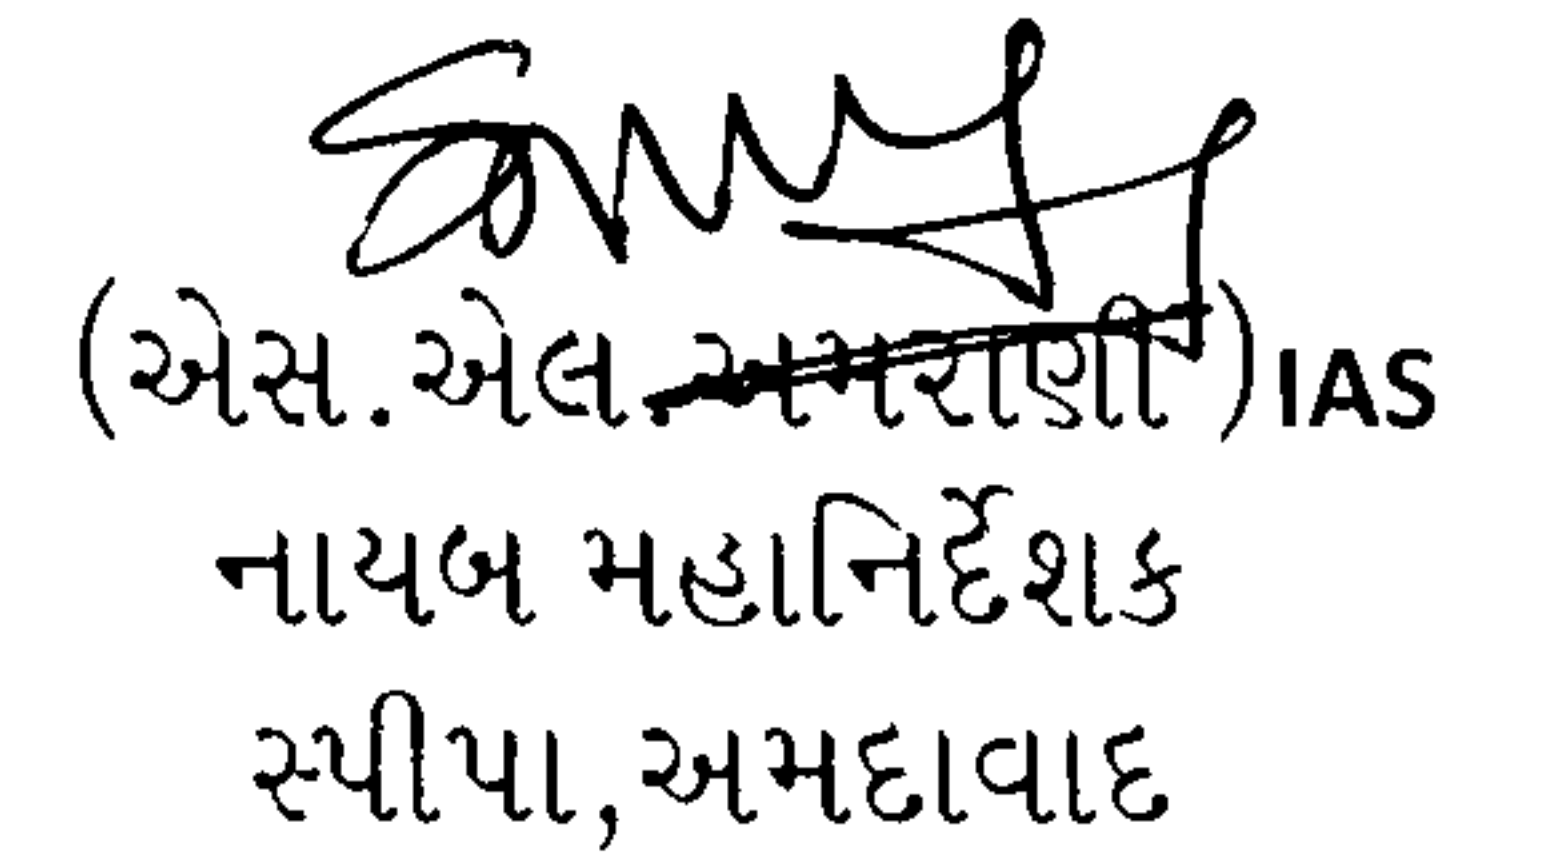 (એસ.એલ.અમરાણી)IAS
નાયબ મહાનિર્દેશક
સ્પીપા,અમદાવાદ